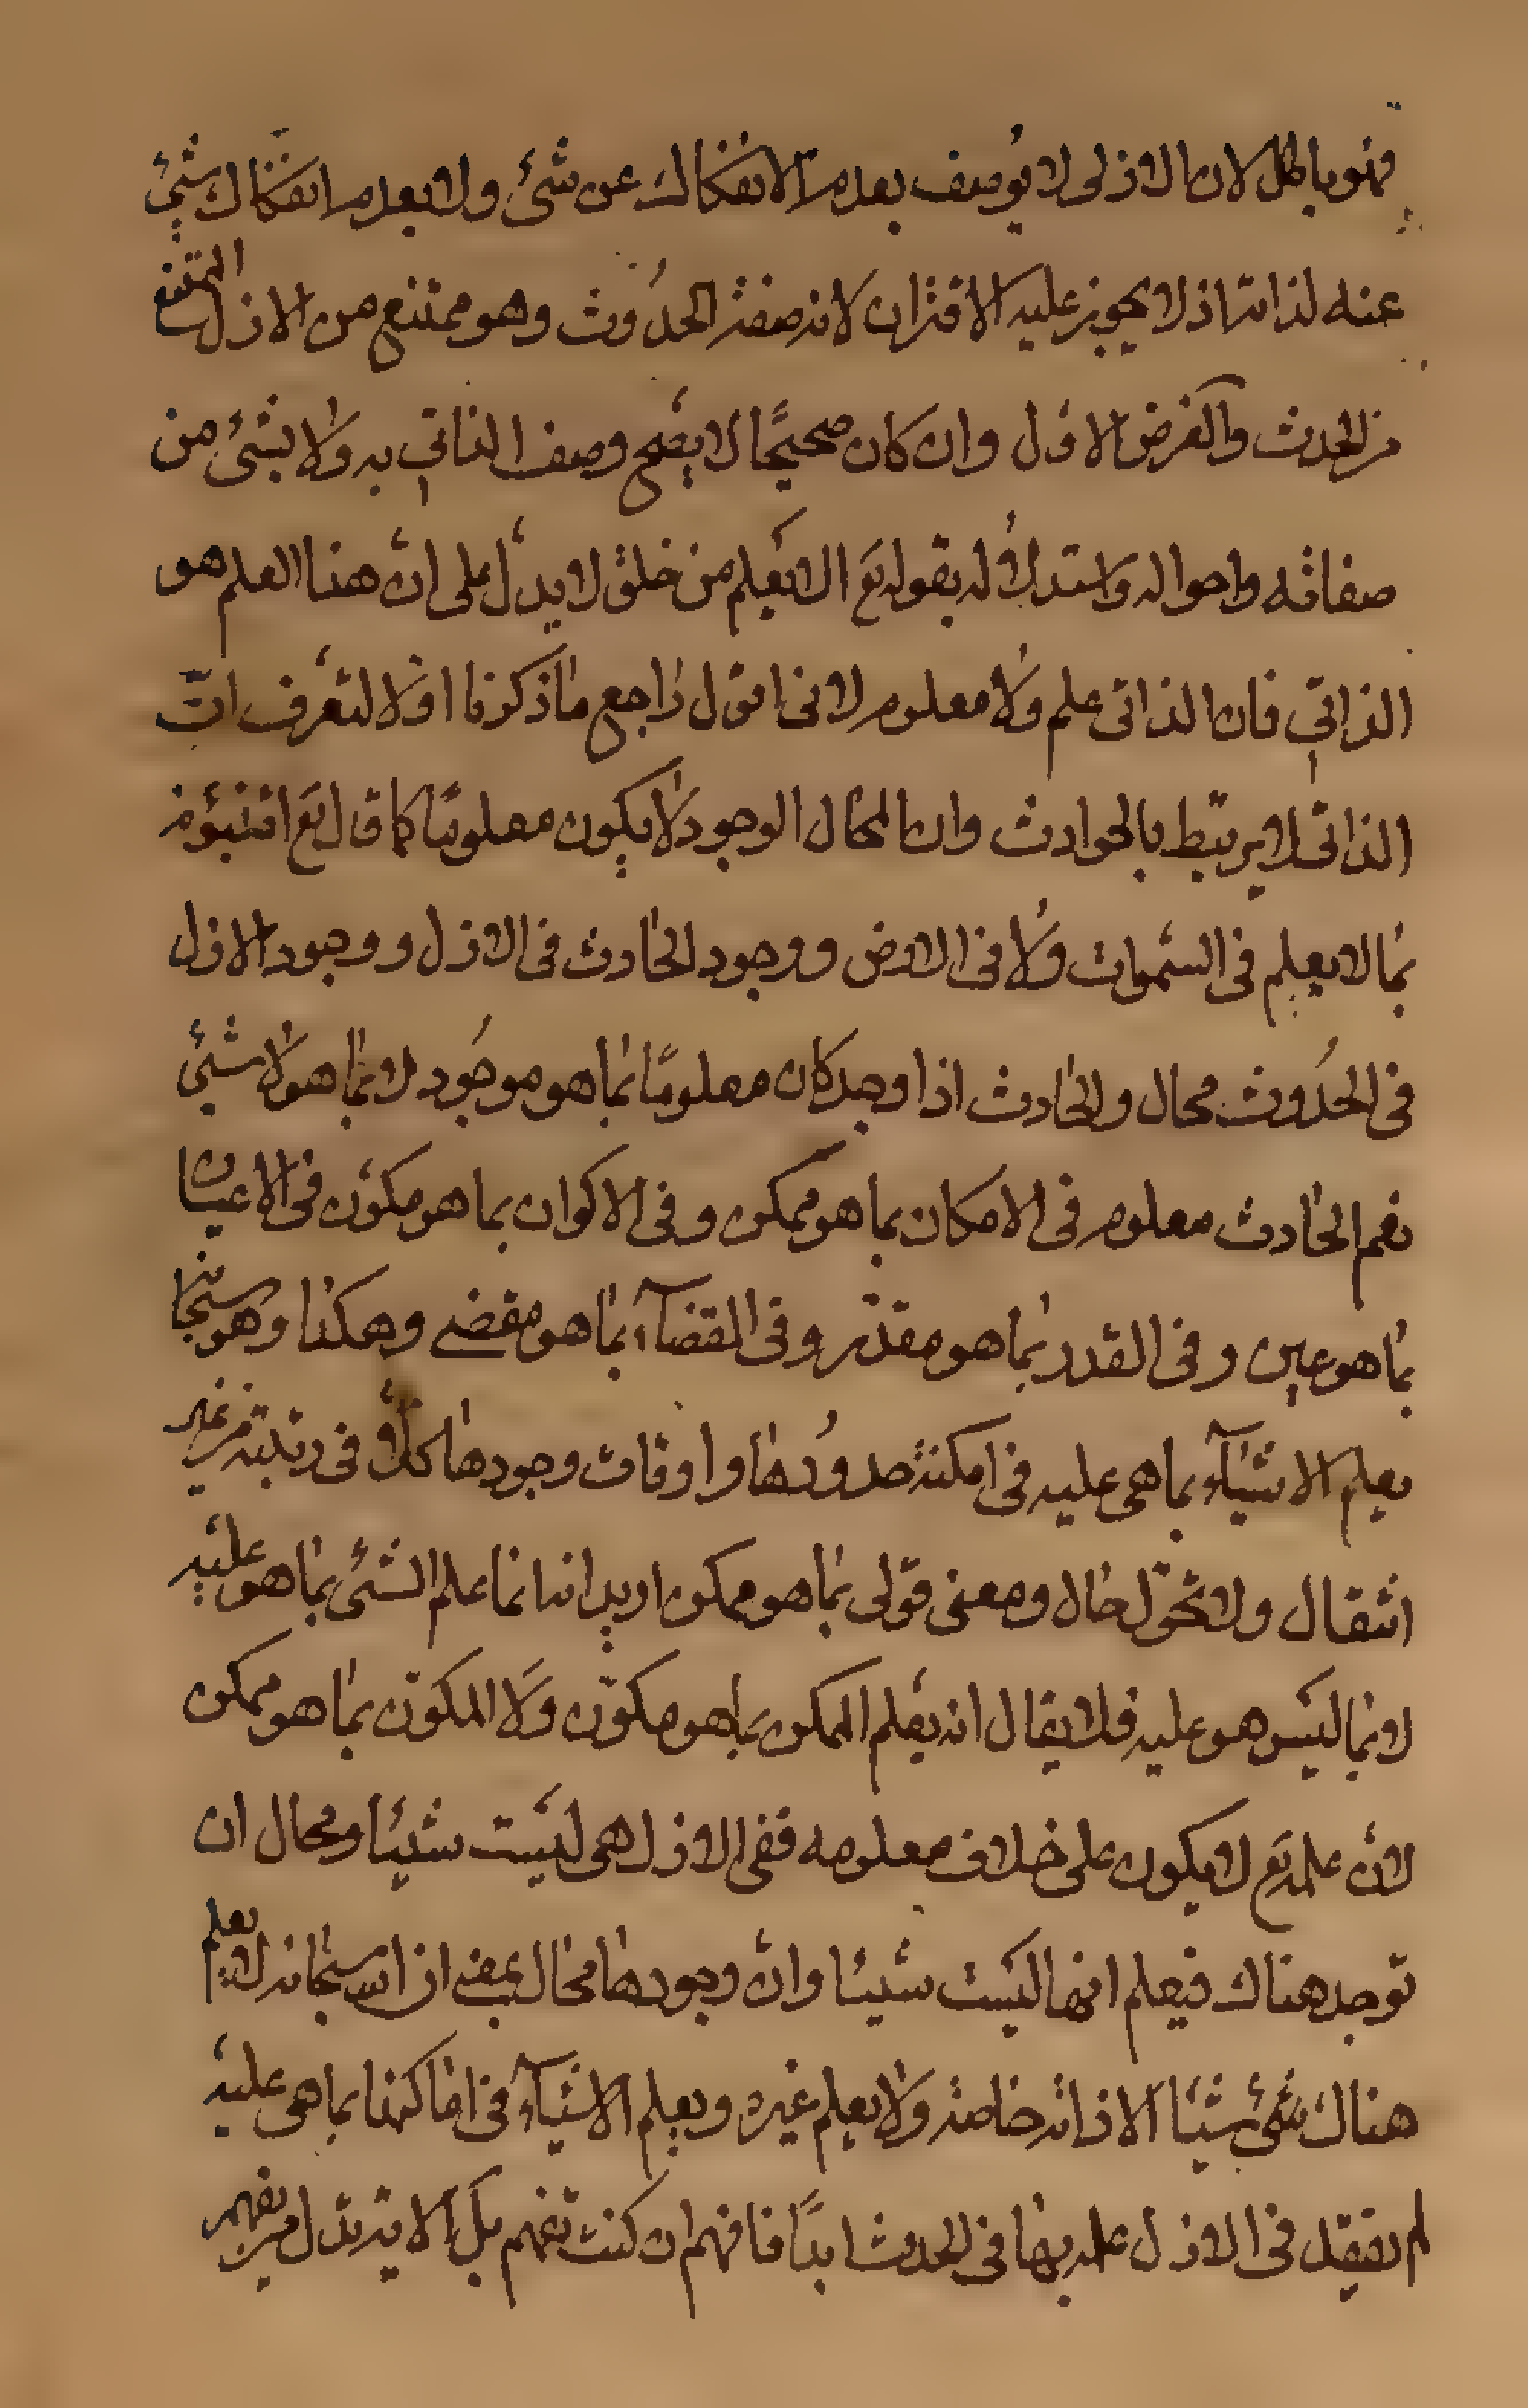 فهو باطل لان الازلى لا يوصف بعدم الانفكاك عن شئ ولا بعدم انفكاك شئ
عنه لذاته اذ لا يجوز عليه الاقتران لانه صفة الحدوث وهو ممتنع من الازل الممتنع
من الحدث والفرض الاول وان كان صحيحًا لا يصح وصف الذاتي به ولا بشئ من
صفاته واحواله واستدلاله بقوله تع الا يعلم من خلق لا يدل على ان هذا العلم هو
الذاتي فان الذاتى علم ولا معلوم لانى اقول راجع ما ذكرنا اولا لتعرف ان
الذاتى لا يرتبط بالحوادث وان المحال الوجود لا يكون معلومًا كما قال تع اتنبؤنه
بما لا يعلم فى السموات ولا فى الارض ووجود الحادث فى الازل ووجود الازل
فى الحدوث محال والحادث اذا وجد كان معلومًا بما هو موجود لا بما هو لا شئ
نعم الحادث معلوم فى الامكان بما هو ممكن وفى الاكوان بما هو مكون فى الاعيان
بما هو عين وفى القدر بما هو مقدر وفى القضآء بما هو مقضى وهكذا وهو سبحانه
يعلم الاشيآء بما هى عليه فى امكنة حدودها واوقات وجودها كلاً فى رتبته من غير
انتقال ولا تحول حال ومعنى قولى بما هو ممكن اريد انه انما علم الشئ بما هو عليه
لا بما ليس هو عليه فلا يقال انه يعلم الممكن بما هو مكون ولا المكون بما هو ممكن
لان علمه تع لا يكون على خلاف معلومه ففى الازل هى ليست شيئا ومحال ان
توجد هناك فيعلم انها ليست شيئا وان وجودها محال بمعنى انه سبحانه لا يعلم
هناك شيئا الا ذاته خاصة ولا يعلم غيره ويعلم الاشيآء فى اماكنها بما هى عليه
لم يفقد فى الازل علمه بها فى الحدث ابدًا فافهم ان كنت تفهم بل الا يتبدل من يفهم